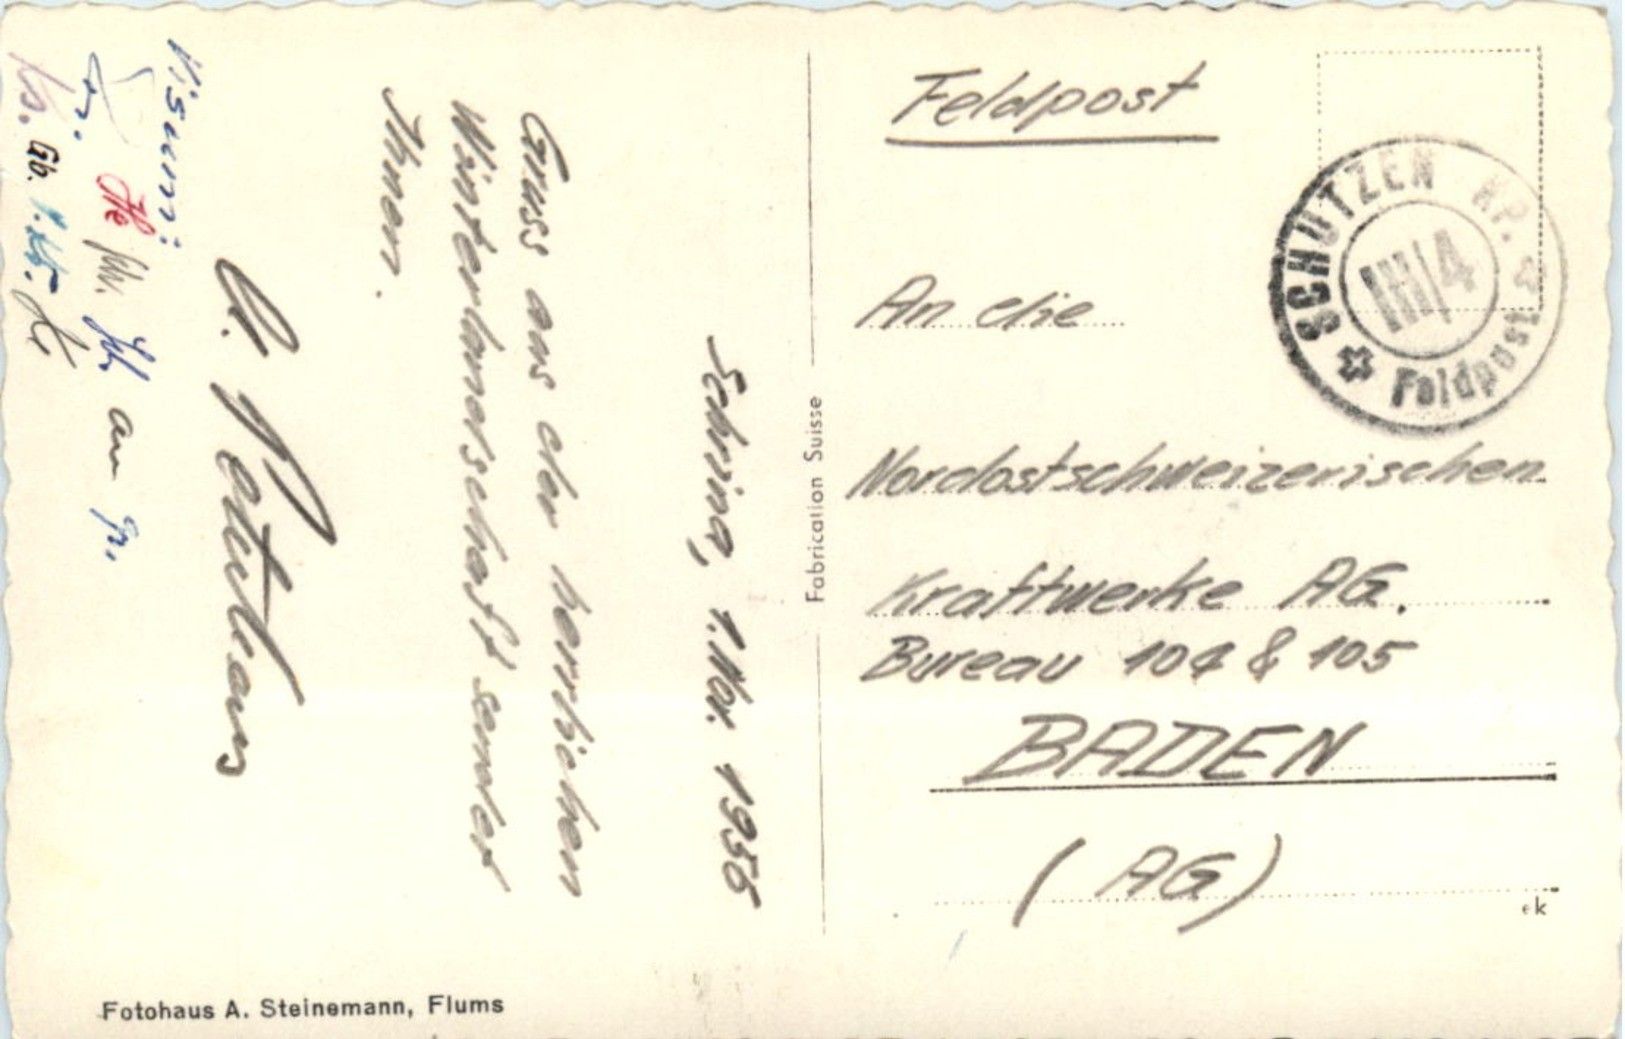 Feldpost
SCHÜTZEN KP. III/4
Feldpost
An die
Nordostschweizerischen
Kraftwerke AG.
Bureau 104 & 105
BADEN
(AG)
ek
Fabrication Suisse
Schrina, 1. Nov. 1956
Gruss aus der herrlichen
Winterlandschaft sendet
Ihnen.
Visum:
Gb.
Fotohaus A. Steinemann, Flums